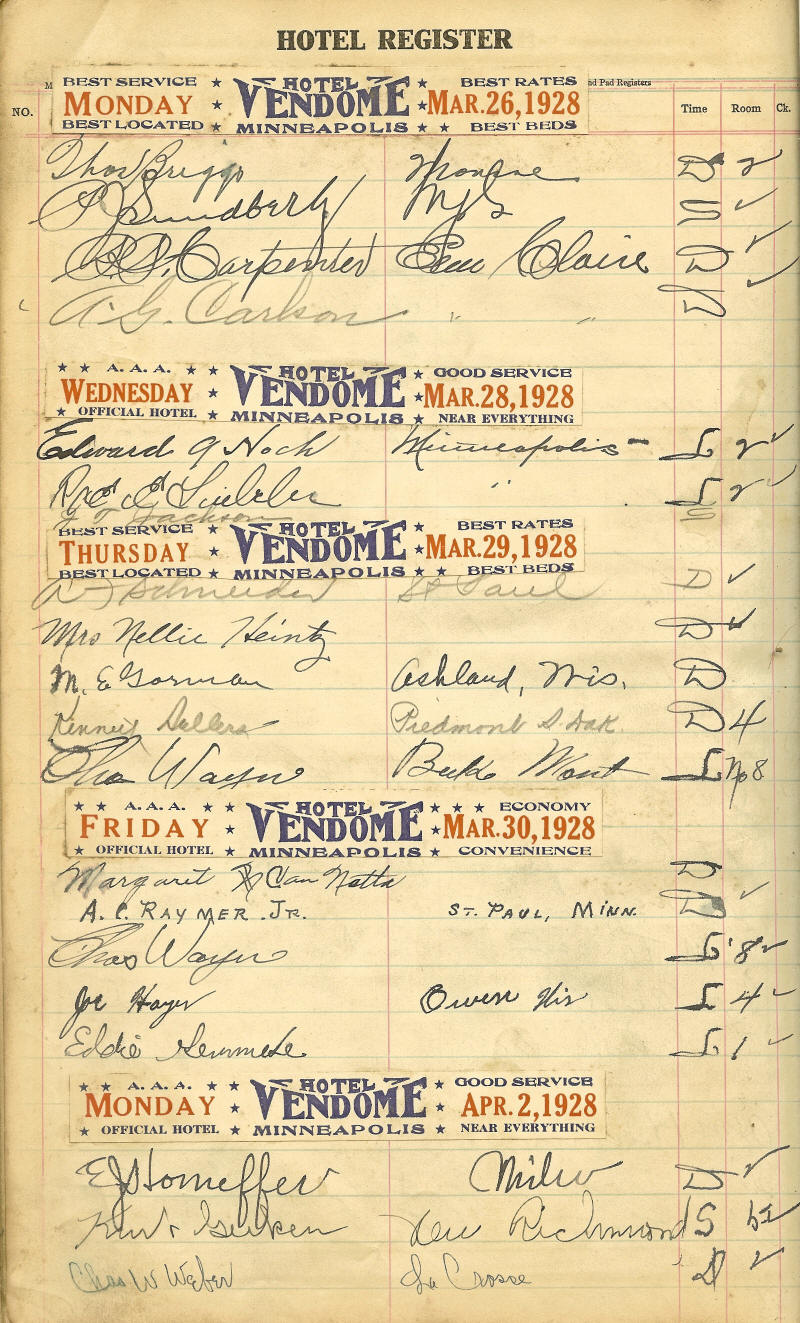 HOTEL REGISTER
nd Pad Registers
NO. Time Room Ck.
BEST SERVICE ★ HOTEL ★ BEST RATES
MONDAY ★ VENDOME ★ MAR. 26, 1928
BEST LOCATED ★ MINNEAPOLIS ★ ★ BEST BEDS
Thos Briggs D
P J Sundberg Mpls S ✓
Carpenter Eau Claire D ✓
A. G. Carlson " " D ✓
★ ★ A. A. A. ★ ★ HOTEL ★ GOOD SERVICE
WEDNESDAY ★ VENDOME ★ MAR. 28, 1928
★ OFFICIAL HOTEL ★ MINNEAPOLIS ★ NEAR EVERYTHING
Edward Noch Minneapolis L 2 ✓
" L 2 ✓
Jackson S
BEST SERVICE ★ HOTEL ★ BEST RATES
THURSDAY ★ VENDOME ★ MAR. 29, 1928
BEST LOCATED ★ MINNEAPOLIS ★ ★ BEST BEDS
Schneider St Paul D ✓
Mrs Nellie Heintz D ✓
M. E Gorman Ashland, Wis. D
Piedmont S. Dak. D 4
Chas Wayne Mont L No 8
★ ★ A. A. A. ★ ★ HOTEL ★ ★ ★ ECONOMY
FRIDAY ★ VENDOME ★ MAR. 30, 1928
★ OFFICIAL HOTEL ★ MINNEAPOLIS ★ CONVENIENCE
Margaret Van Natta D
A. C. RAYMER JR. ST. PAUL, MINN. D ✓
Chas Wayne L 8 ✓
Joe Hayer Owen Wis L 4 ✓
Eddie L 1 ✓
★ ★ A. A. A. ★ ★ HOTEL ★ GOOD SERVICE
MONDAY ★ VENDOME ★ APR. 2, 1928
★ OFFICIAL HOTEL ★ MINNEAPOLIS ★ NEAR EVERYTHING
E J Homeffer Milw D ✓
Gerken New Richmond S
Chas W Weber La Crosse D ✓